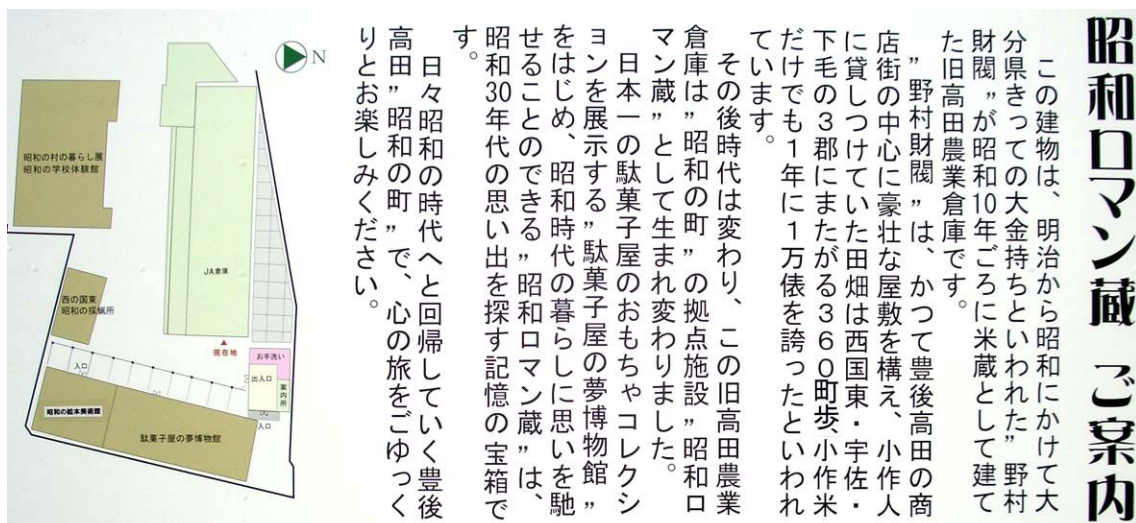 昭和ロマン蔵 ご案内
この建物は、明治から昭和にかけて大
分県きっての大金持ちといわれた”野村
財閥”が昭和10年ごろに米蔵として建て
た旧高田農業倉庫です。
”野村財閥”は、かつて豊後高田の商
店街の中心に豪壮な屋敷を構え、小作人
に貸しつけていた田畑は西国東・宇佐・
下毛の3郡にまたがる360町歩、小作米
だけでも1年に1万俵を誇ったといわれ
ています。
その後時代は変わり、この旧高田農業
倉庫は”昭和の町”の拠点施設”昭和ロ
マン蔵”として生まれ変わりました。
日本一の駄菓子屋のおもちゃコレクシ
ョンを展示する”駄菓子屋の夢博物館”
をはじめ、昭和時代の暮らしに思いを馳
せることのできる”昭和ロマン蔵”は、
昭和30年代の思い出を探す記憶の宝箱で
す。
日々昭和の時代へと回帰していく豊後
高田”昭和の町”で、心の旅をごゆっく
りとお楽しみください。
N
昭和の村の暮らし展
昭和の学校体験館
JA倉庫
西の国東
昭和の採編所
現在地
お手洗い
出入口
案内所
入口
入口
昭和の絵本美術館
駄菓子屋の夢博物館